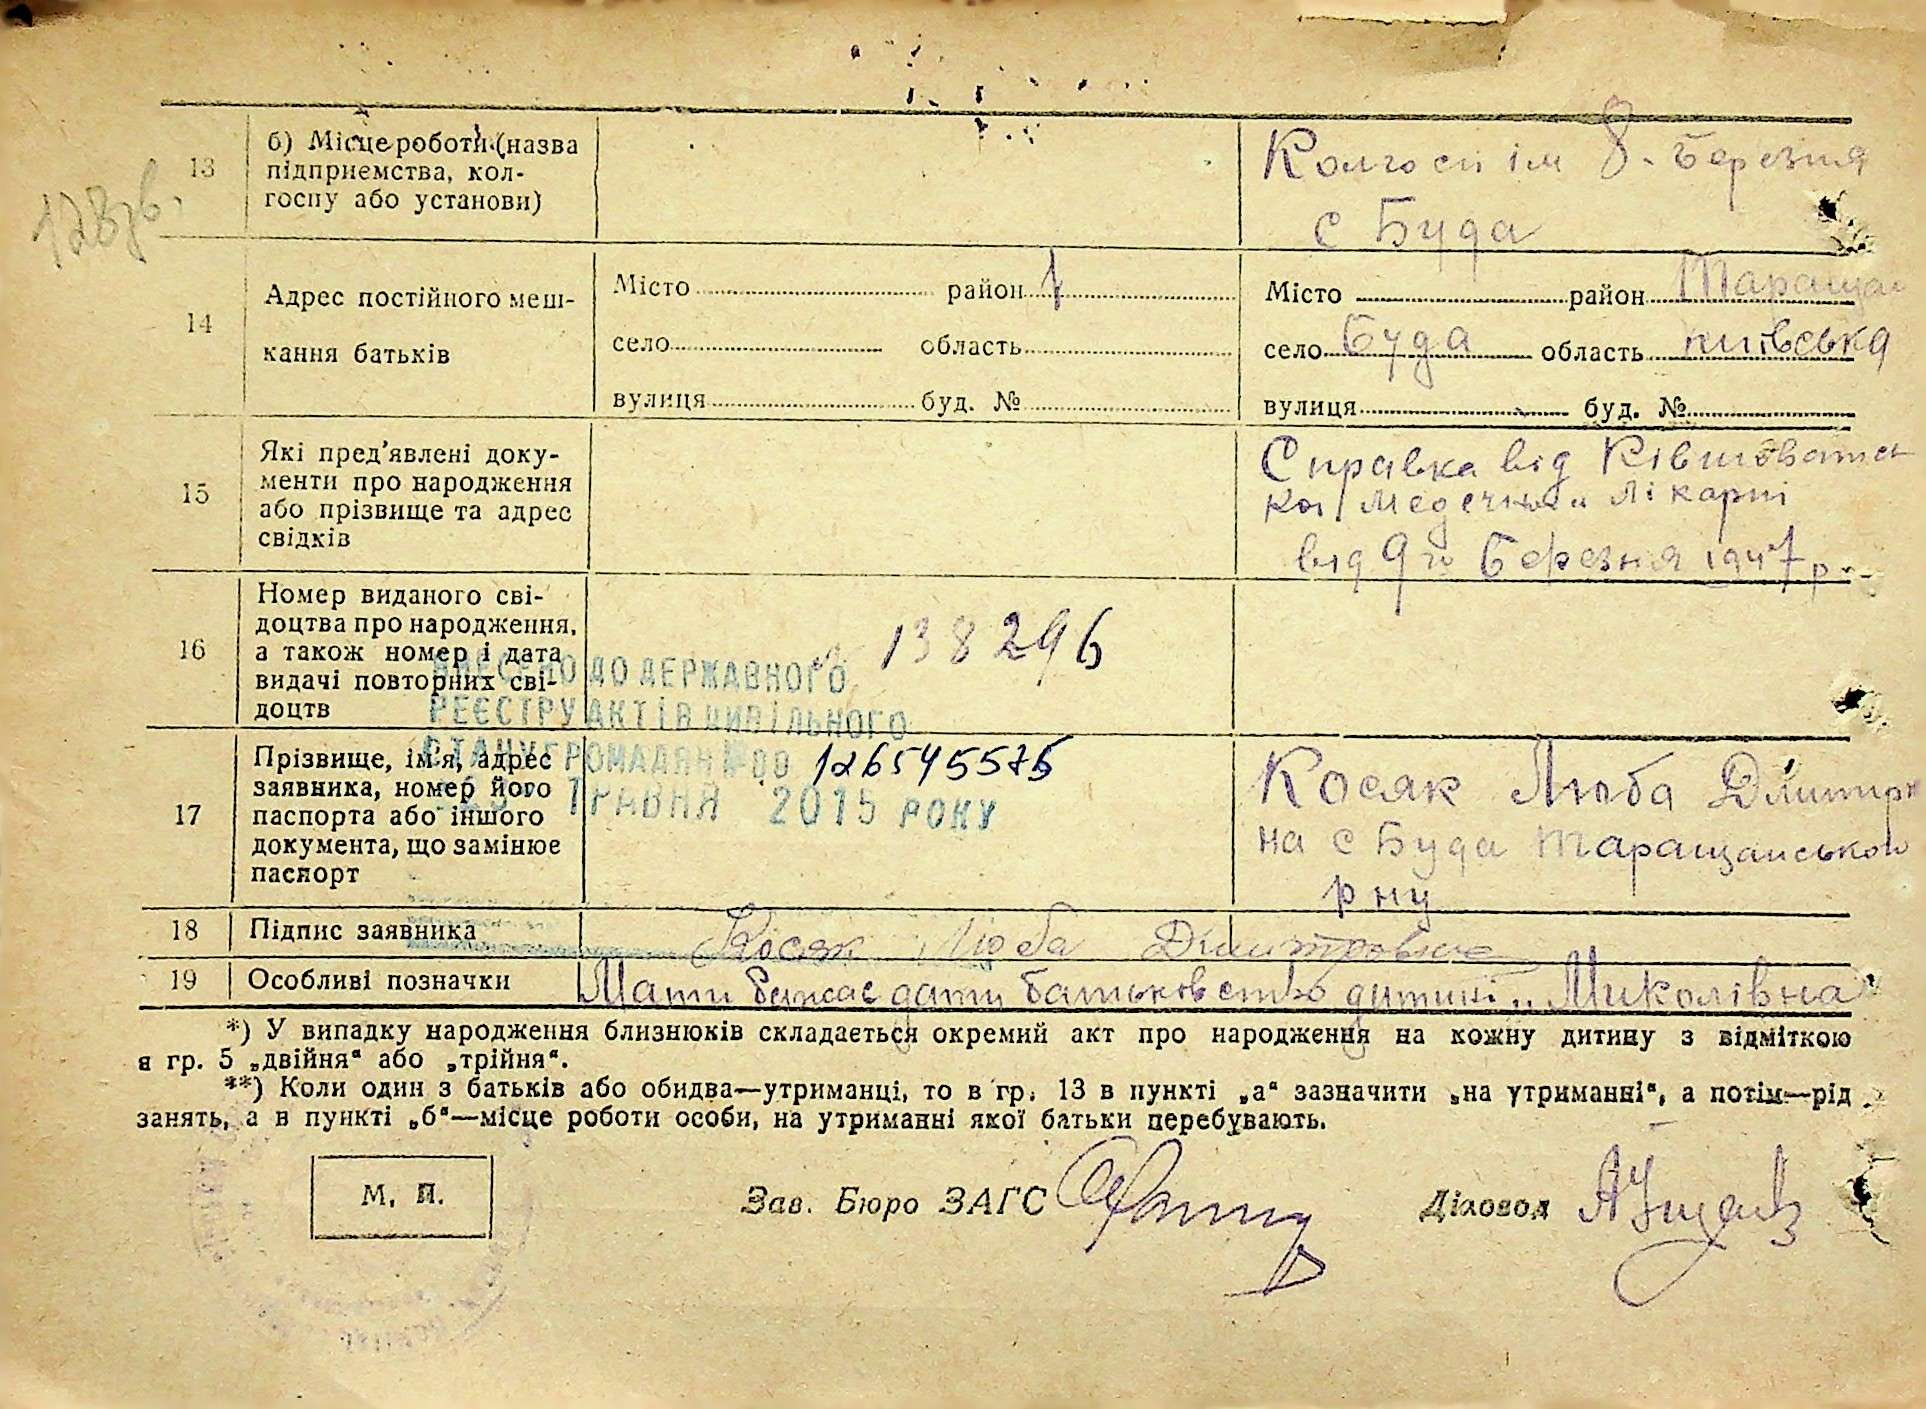 128зв.
13
б) Місце роботи (назва
підприємства, кол-
госпу або установи)
Колгосп ім 8. Березня
с Буда
14
Адрес постійного меш-
кання батьків
Місто район
село область
вулиця буд. №
Місто район Таращан
село Буда область київська
вулиця буд. №
15
Які пред’явлені доку-
менти про народження
або прізвище та адрес
свідків
Справка від
лікарні
від 9го Березня 1947 р
16
Номер виданого сві-
доцтва про народження,
а також номер і дата
видачі повторних сві-
доцтв
138296
ВНЕСЕНО ДО ДЕРЖАВНОГО
РЕЄСТРУ АКТІВ ЦИВІЛЬНОГО
СТАНУ ГРОМАДЯН №00 126545575
ТРАВНЯ 2015 РОКУ
17
Прізвище, ім’я, адрес
заявника, номер його
паспорта або іншого
документа, що замінює
паспорт
Косяк Люба Дмитрі
на с Буда Таращанського
р ну
18
Підпис заявника
Косяк Люба Дмитровна
19
Особливі позначки
Мати бажає дати батьковство дитині „Миколівна“
*) У випадку народження близнюків складається окремий акт про народження на кожну дитину з відміткою
в гр. 5 „двійня“ або „трійня“.
**) Коли один з батьків або обидва—утриманці, то в гр. 13 в пункті „а“ зазначити „на утриманні“, а потім—рід
занять, а в пункті „б“—місце роботи особи, на утриманні якої батьки перебувають.
М. П.
Зав. Бюро ЗАГС
Діловод